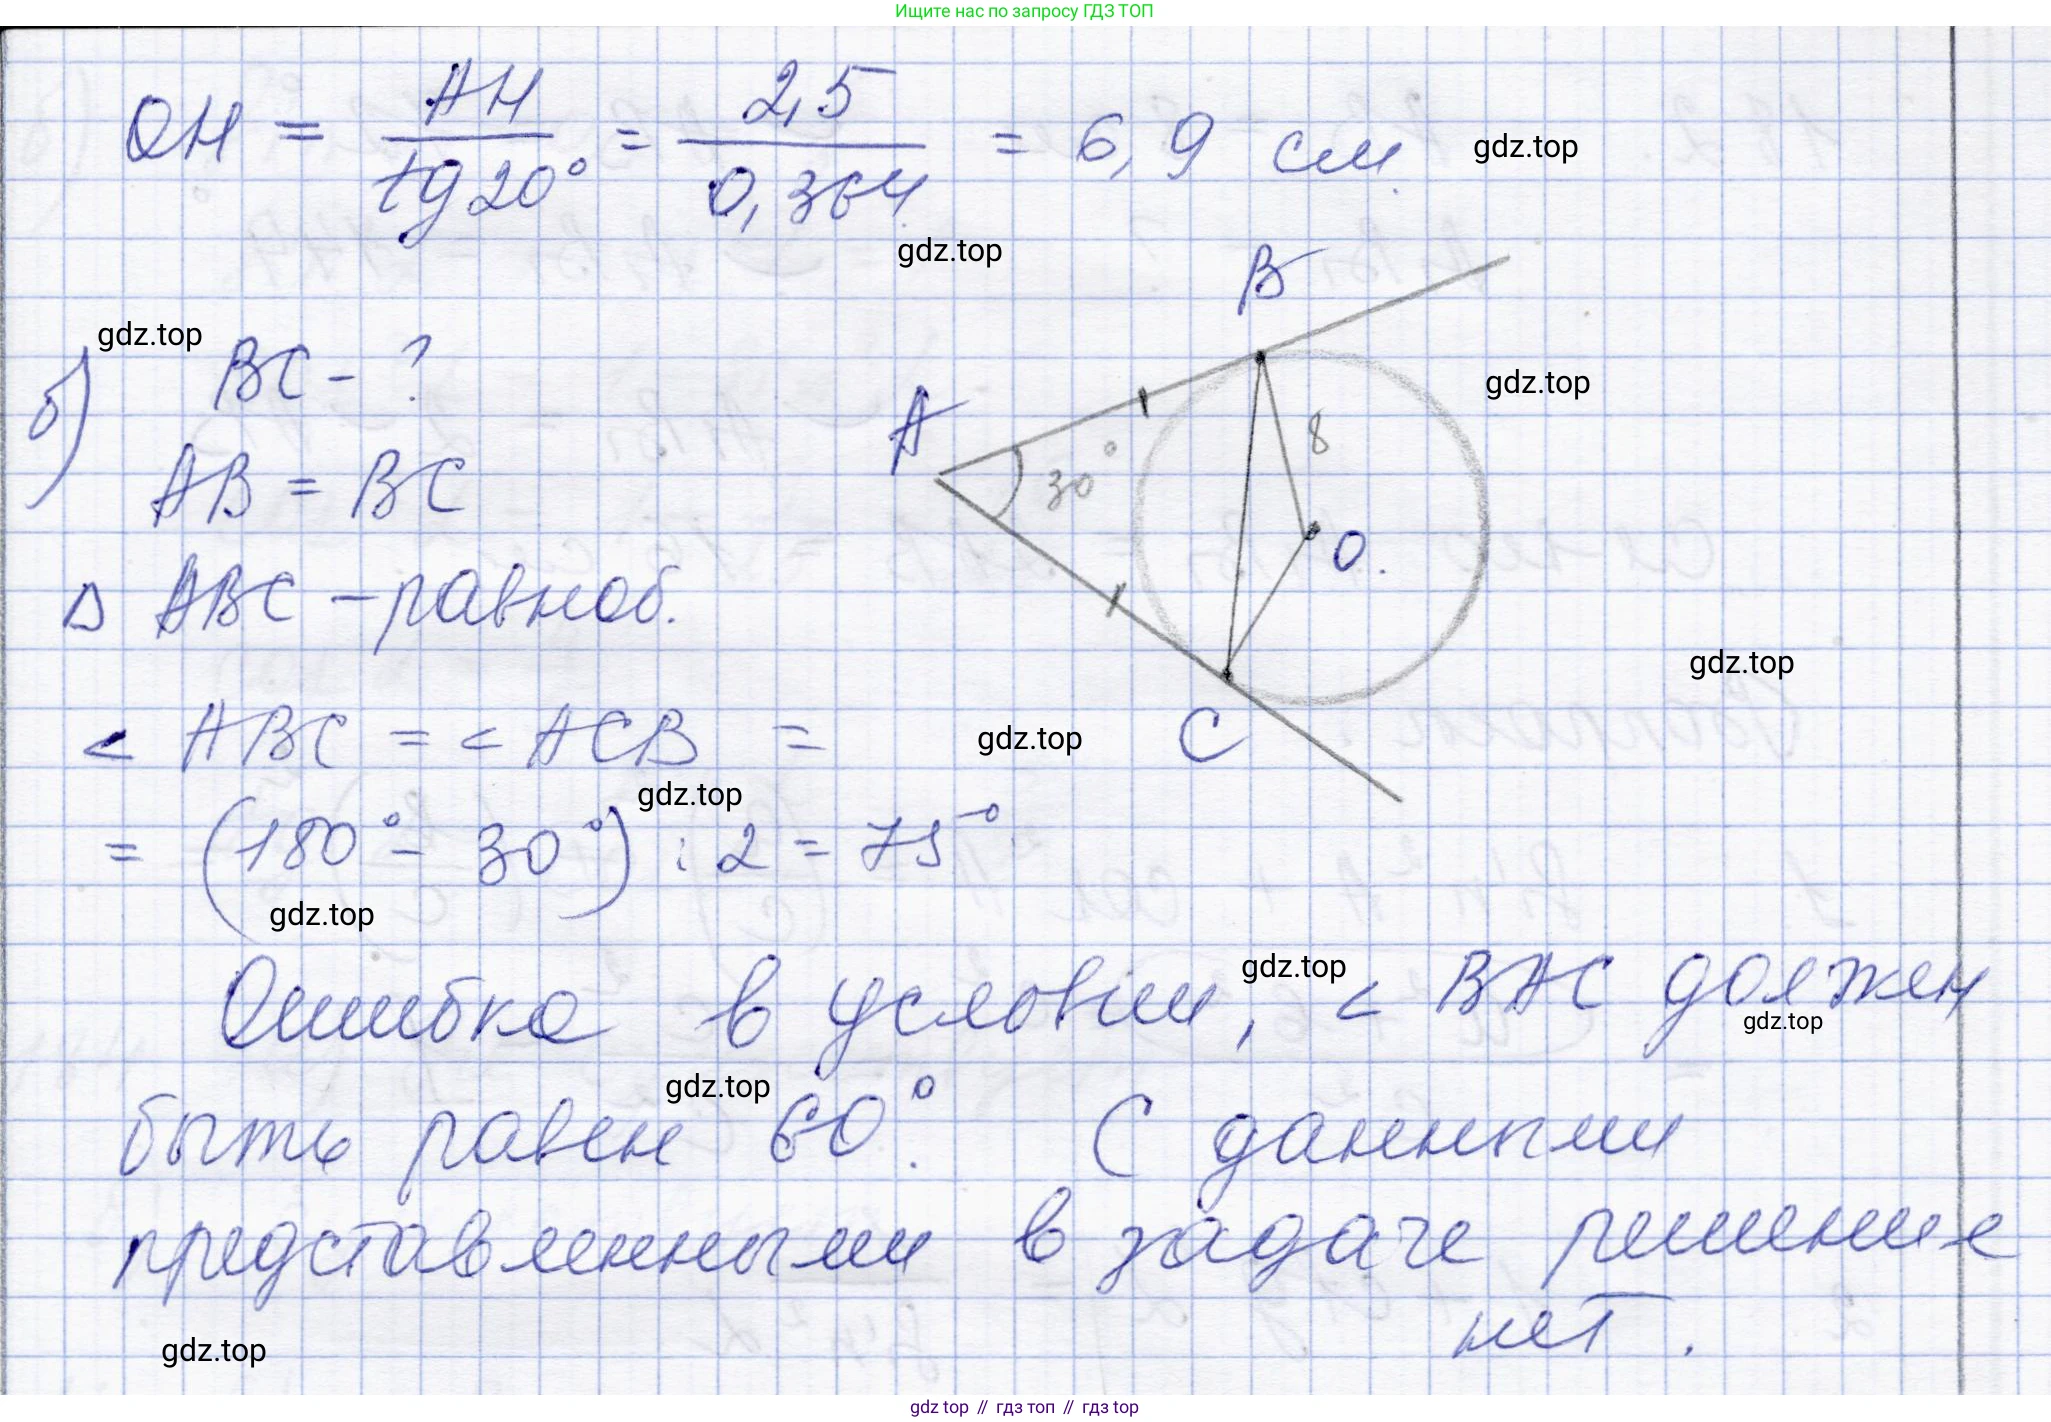 Ищите нас по запросу ГДЗ ТОП
OH = AH / tg 20° = 2,5 / 0,364 = 6,9 см.
gdz.top
gdz.top
B
gdz.top
б) BC - ?
gdz.top
A
8
30°
AB = BC
O.
△ ABC - равноб.
gdz.top
< ABC = < ACB =
gdz.top
C
gdz.top
= (180° - 30°) : 2 = 75°.
gdz.top
gdz.top
Ошибка в условии, < BAC должен
gdz.top
gdz.top
быть равен 60°. С данными
представленными в задаче решение
нет.
gdz.top
gdz top // гдз топ // гдз top